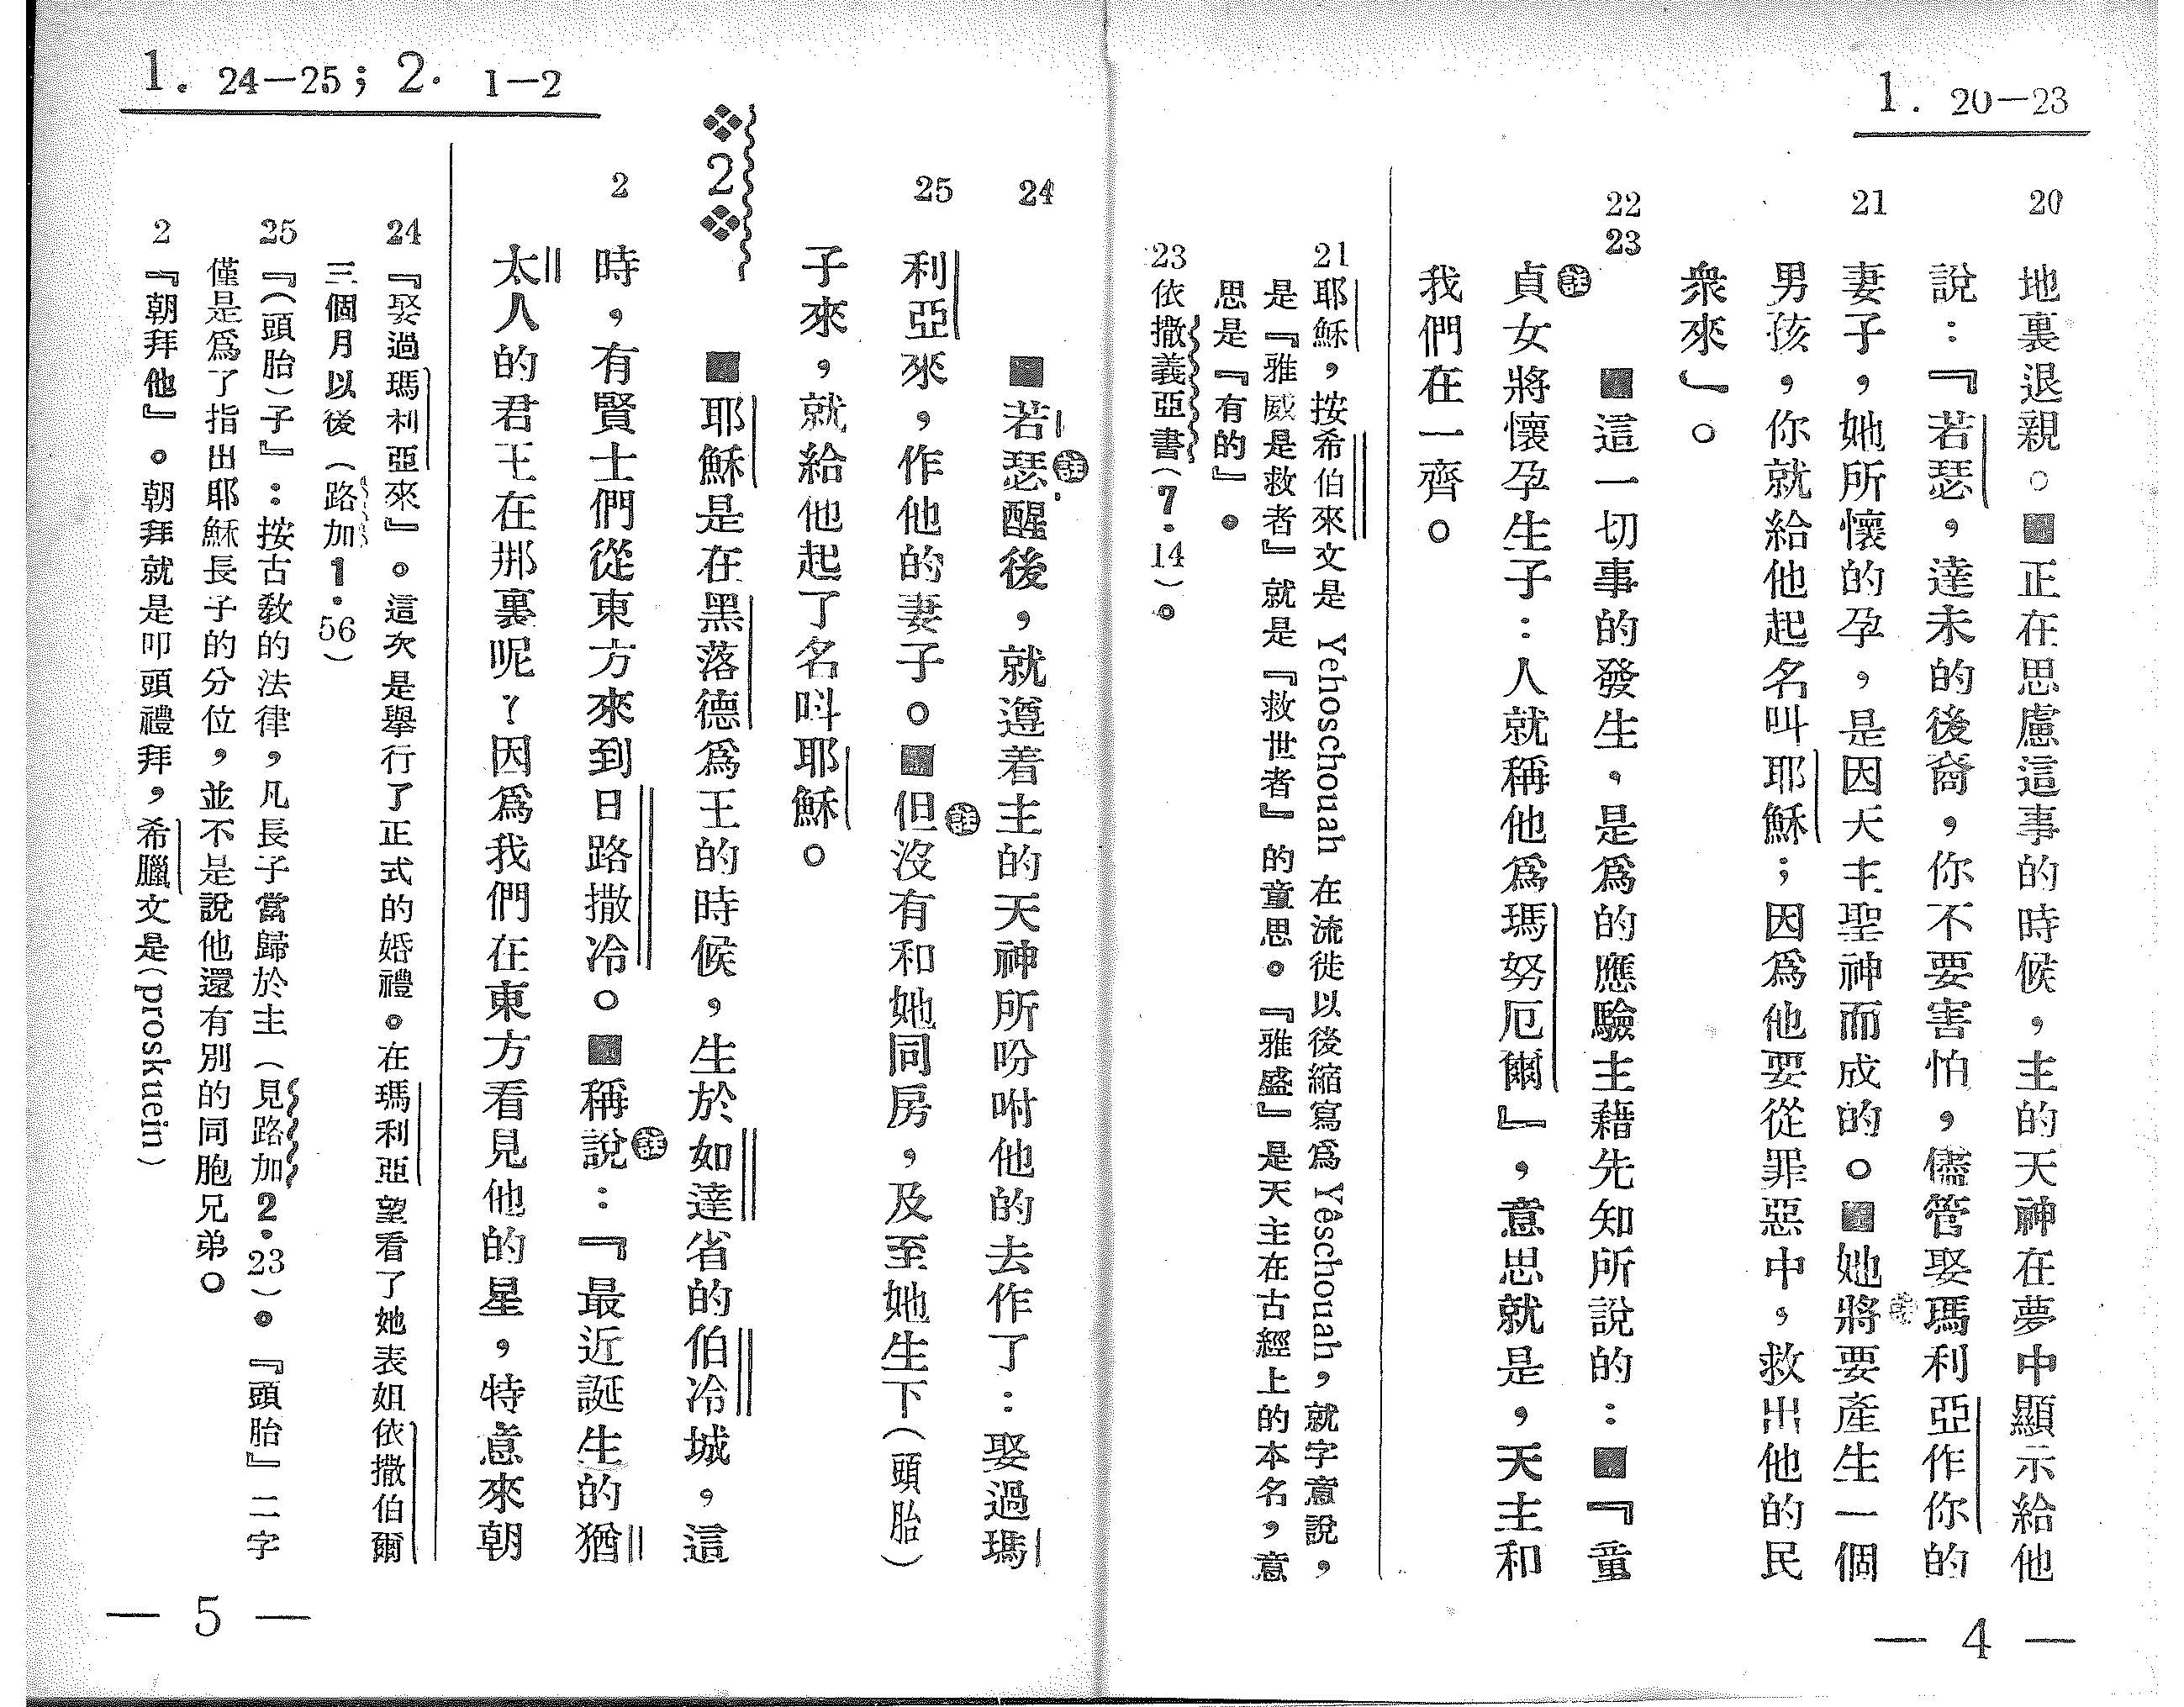 1. 20—23
20
地裏退親。■正在思慮這事的時候，主的天神在夢中顯示給他
說：『若瑟，達未的後裔，你不要害怕，儘管娶瑪利亞作你的
21
妻子，她所懷的孕，是因天主聖神而成的。■她將㊟要產生一個
男孩，你就給他起名叫耶穌；因爲他要從罪惡中，救出他的民
衆來』。
22
23
■這一切事的發生，是爲的應驗主藉先知所說的：■『童
貞㊟女將懷孕生子：人就稱他爲瑪努厄爾』，意思就是，天主和
我們在一齊。
21耶穌，按希伯來文是 Yehoschouah 在流徙以後縮寫爲 Yêschouah，就字意說，
是『雅威是救者』就是『救世者』的意思。『雅盛』是天主在古經上的本名，意
思是『有的』。
23依撒義亞書（7.14）。
— 4 —
1. 24—25；2. 1—2
24
■若瑟㊟醒後，就遵着主的天神所吩咐他的去作了：娶過瑪
25
利亞來，作他的妻子。■但㊟沒有和她同房，及至她生下（頭胎）
子來，就給他起了名叫耶穌。
2
■耶穌是在黑落德爲王的時候，生於如達省的伯冷城，這
2
時，有賢士們從東方來到日路撒冷。■稱說㊟：『最近誕生的猶
太人的君王在那裏呢？因爲我們在東方看見他的星，特意來朝
24『娶過瑪利亞來』。這次是舉行了正式的婚禮。在瑪利亞望看了她表姐依撒伯爾
三個月以後（路加1.56）
25『（頭胎）子』：按古敎的法律，凡長子當歸於主（見路加2.23）。『頭胎』二字
僅是爲了指出耶穌長子的分位，並不是說他還有別的同胞兄弟。
2『朝拜他』。朝拜就是叩頭禮拜，希臘文是（proskuein）
— 5 —